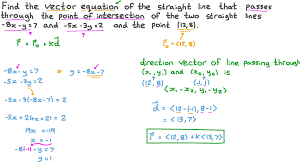 Find the vector equation of the straight line that passes
through the point of intersection of the two straight lines
-8x-y=7 and -5x-3y=2 and the point (12,8).
r⃗ = r⃗₀ + Kd⃗
r⃗₀ = <12,8>
-8x-y=7 ⇒ y=-8x-7
-5x-3y=2
-5x-3(-8x-7)=2
-5x+24x+21=2
19x=-19
x=-1
-8(-1)-y=7
y=1
direction vector of line passing through
(x₁,y₁) and (x₂,y₂) is
(12,8) (-1,1)
<x₁-x₂, y₁-y₂>
d⃗ = <12-(-1), 8-1>
= <13,7>
r⃗ = <12,8> + K<13,7>